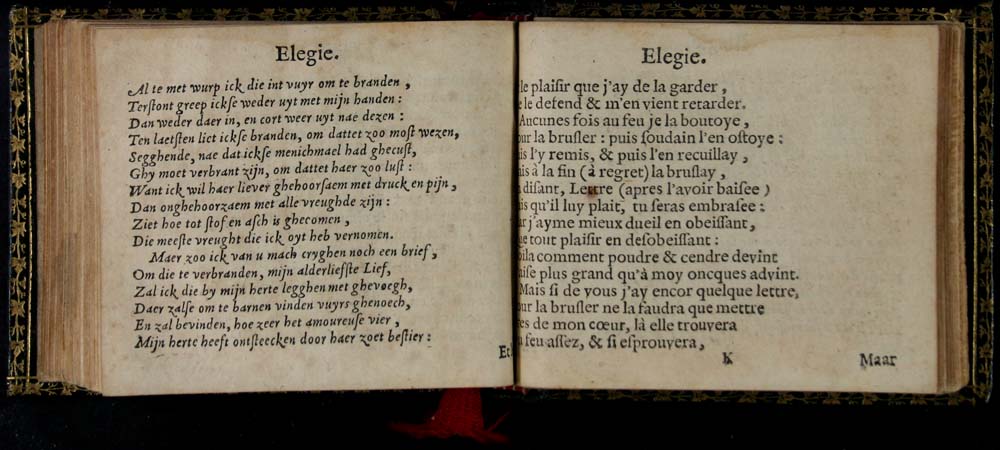 Elegie.
Al te met wurp ick die int vuyr om te branden ,
Terſtont greep ickſe weder uyt met mijn handen :
Dan weder daer in, en cort weer uyt nae dezen :
Ten laetſten liet ickſe branden, om dattet zoo moſt wezen,
Segghende, nae dat ickſe menichmael had ghecuſt,
Ghy moet verbrant zijn, om dattet haer zoo luſt :
Want ick wil haer liever ghehoorſaem met druck en pijn,
Dan onghehoorzaem met alle vreughde zijn :
Ziet hoe tot ſtof en aſch is ghecomen,
Die meeſte vreught die ick oyt heb vernomen.
Maer zoo ick van u mach cryghen noch een brief,
Om die te verbranden, mijn alderliefſte Lief,
Zal ick die by mijn herte legghen met ghevoegh,
Daer zalſe om te barnen vinden vuyrs ghenoech,
En zal bevinden, hoe zeer het amoureuſe vier ,
Mijn herte heeft ontſteecken door haer zoet beſtier :
Et
Elegie.
le plaiſir que j'ay de la garder ,
le defend & m'en vient retarder.
Aucunes fois au feu je la boutoye ,
ur la bruſler : puis ſoudain l'en oſtoye :
is l'y remis, & puis l'en recuillay ,
is à la fin (à regret) la bruſlay ,
diſant, Lettre (apres l'avoir baiſee )
is qu'il luy plait, tu ſeras embraſee :
r j'ayme mieux dueil en obeiſſant,
e tout plaiſir en deſobeiſſant :
ila comment poudre & cendre devint
aiſe plus grand qu'à moy oncques advint.
Mais ſi de vous j'ay encor quelque lettre,
ur la bruſler ne la faudra que mettre
es de mon cœur, là elle trouvera
u feu aſſez, & ſi eſprouvera ,
K Maar